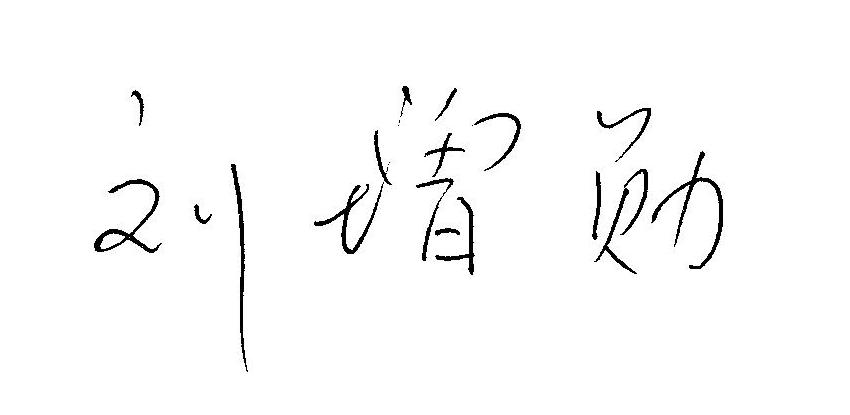 刘增勋